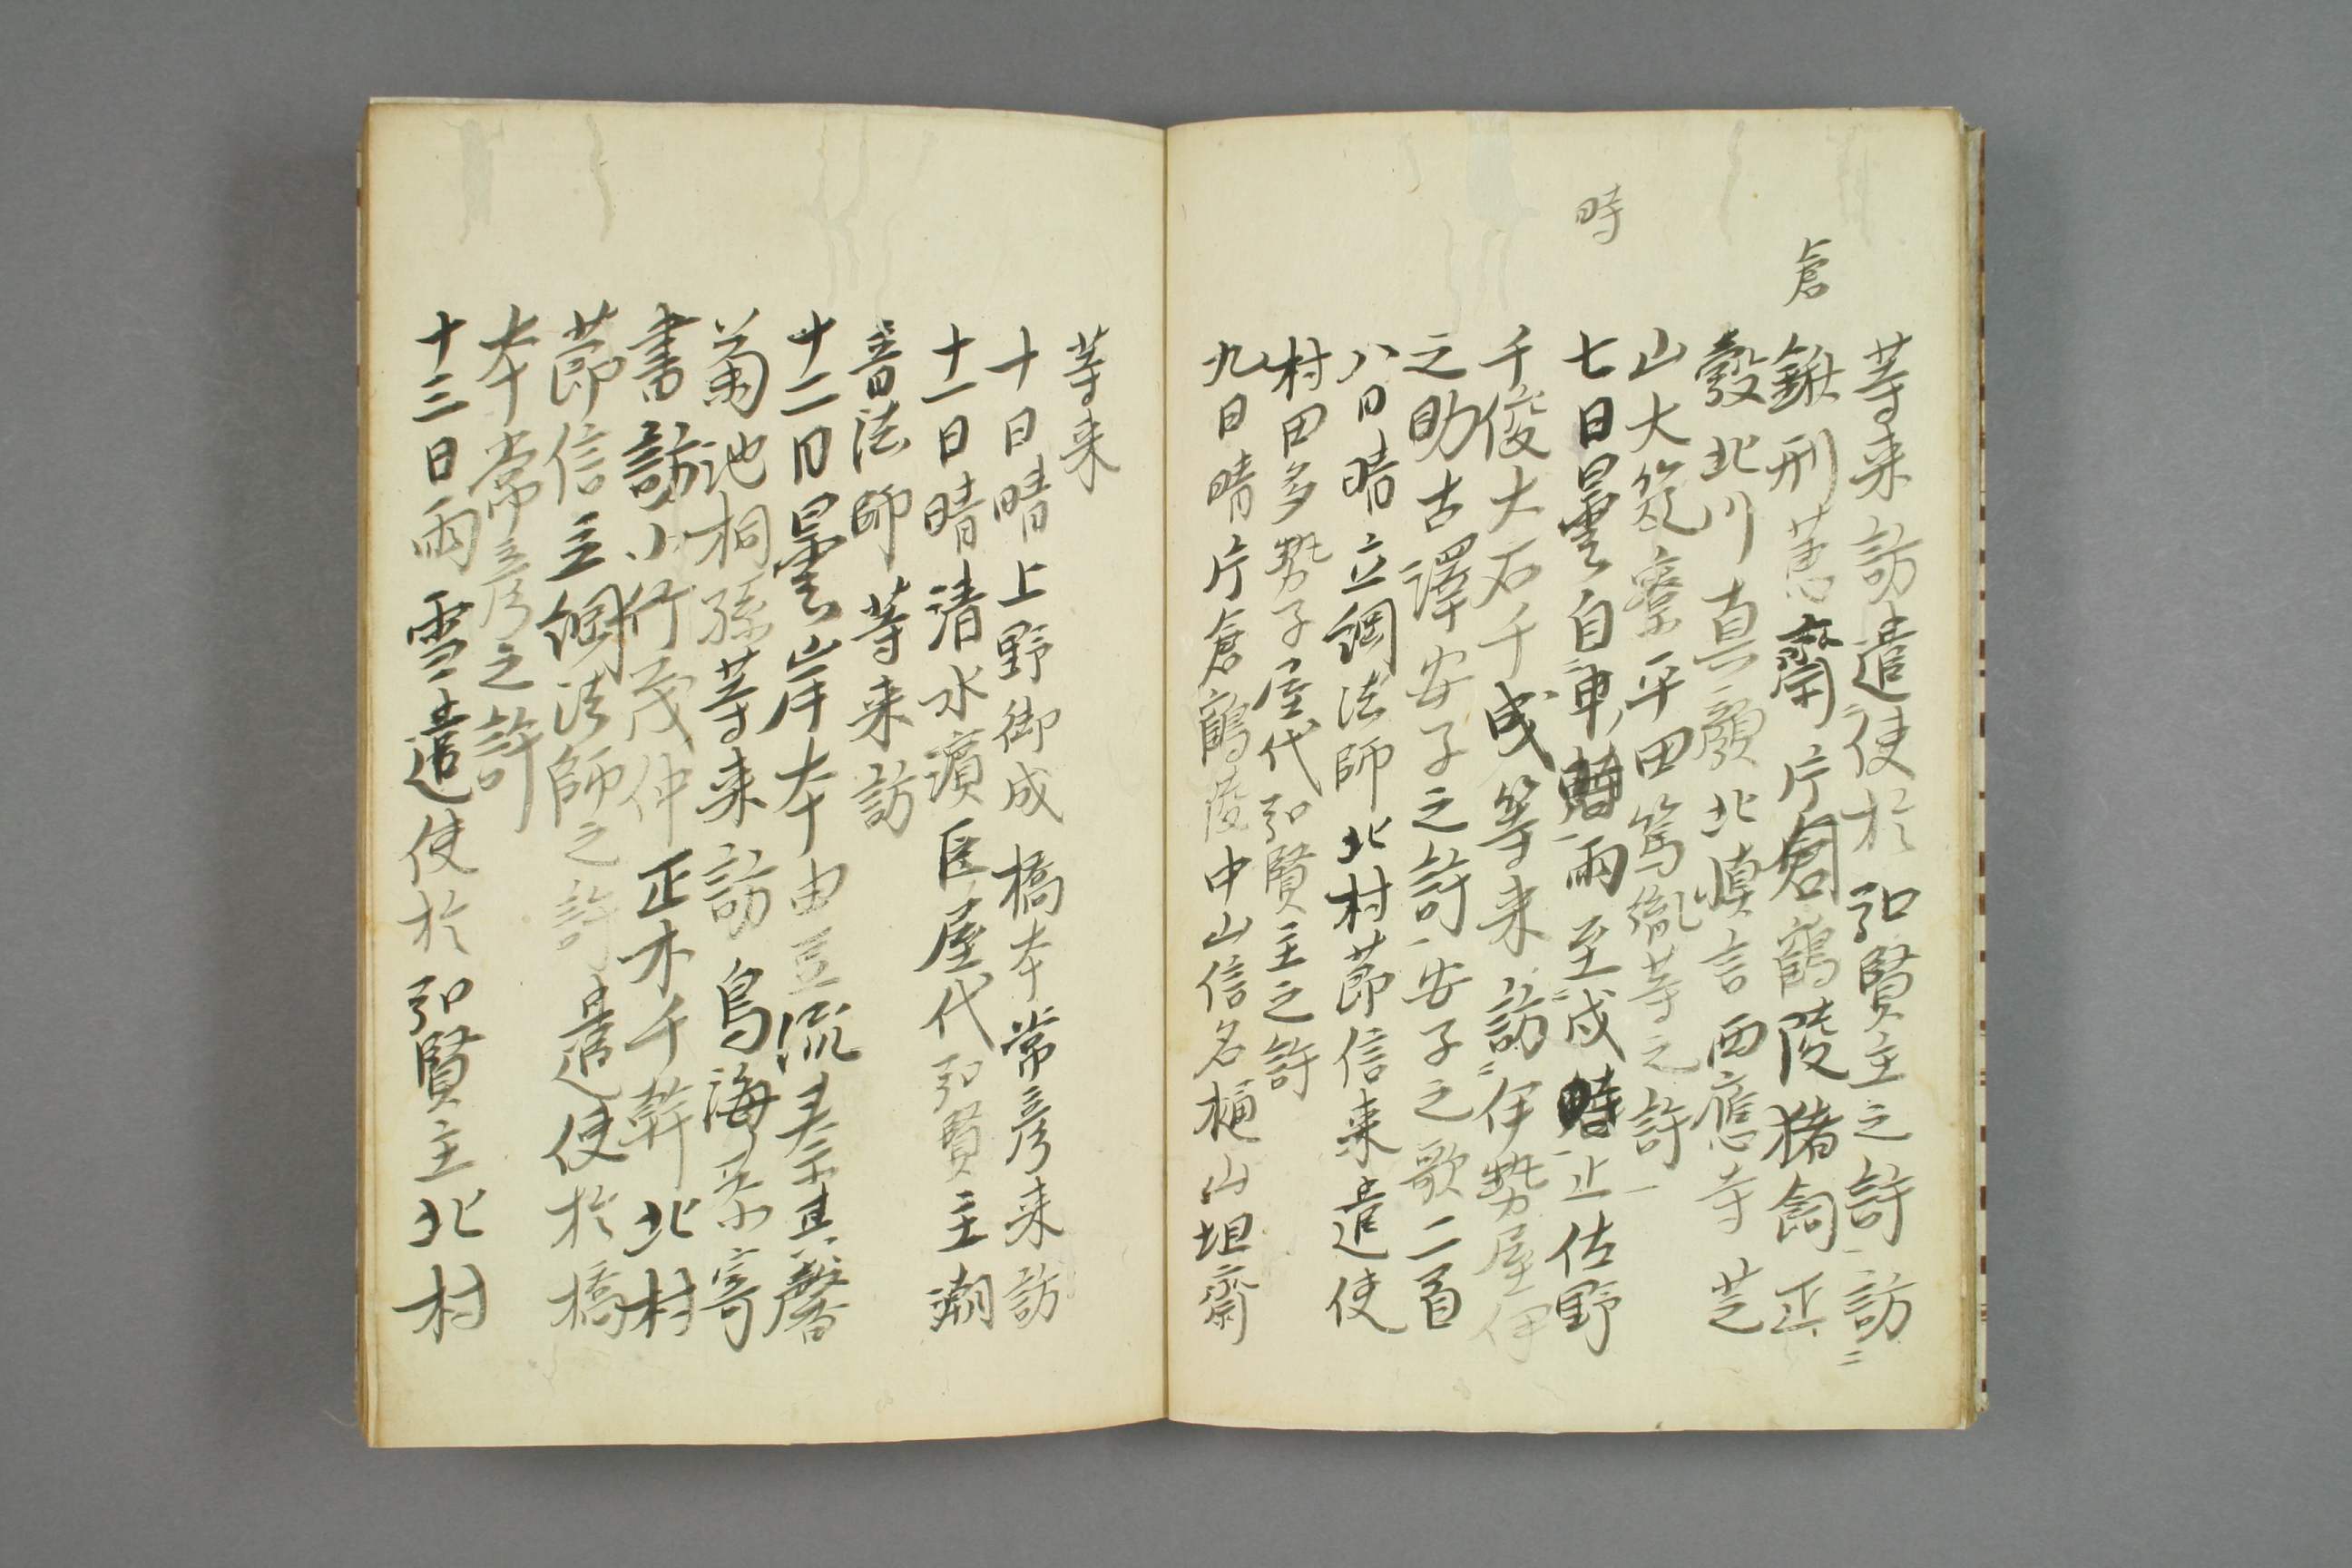 等来訪遣使於弘賢主之許訪
倉
鍬形蕙齋片倉鶴陵猪飼正
彀北川真顔北慎言西應寺芝
山大筑寮平田篤胤等之許
時
七日曇自申時雨至戌時止佐野
千俊大石千成等来訪伊勢屋伊
之助古澤安子之許安子之歌二首
八日晴立綱法師北村莭信来遣使
村田多勢子屋代弘賢主之許
九日晴片倉鶴陵中山信名樋山坦齋
等来
十日晴上野御成橋本常彦来訪
十一日晴清水濱臣屋代弘賢主潮
音法師等来訪
十二日曇岸本由豆流秦其馨
菊池桐孫等来訪鳥海恭寄
書訪小竹茂仲正木千幹北村
莭信立綱法師之許遣使於橋
本常彦之許
十三日雨雪遣使於弘賢主北村